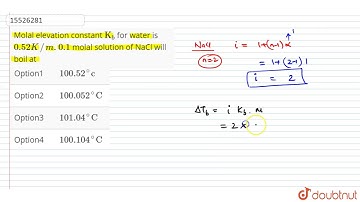 15526281
Molal elevation constant K_b for water is
0.52K/m. 0.1 molal solution of NaCl will
boil at
Option1 100.52°c
Option2 100.052°C
Option3 101.04°C
Option4 100.104°C
NaCl i = 1+(n-1)α 1
n=2 = 1+(2-1)1
i = 2
ΔT_b = i K_b . m
= 2 ×
doubtnut